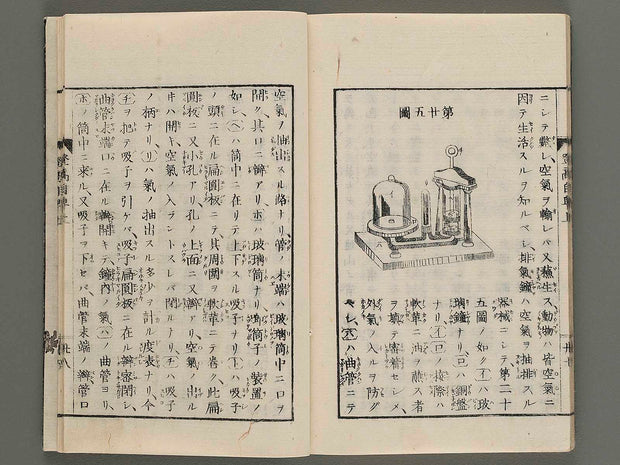 ニシテ斃レ、空氣ヲ輸レバ又蘇生ス、動物ハ皆空氣ニ
因テ生活スルヲ知ルベシ、排氣鐘ハ空氣ヲ抽排スル
第廿五圖
器械ニシテ、第二十
五圖ノ如ク㋑ハ玻
璃鐘ナリ、㋺ハ銅盤
ナリ、㋑㋺ノ接際ハ
軟革ニ油ヲ蘸ス者
ヲ填テ密着セシメ
外氣ノ入ルヲ防グ
ハ曲管ニテ
登高自卑
廿七
空氣ヲ抽出スル路ナリ、管ノ末端ハ玻璃筒中ニ口ヲ
開ク、其口ニ瓣アリ㋭ハ玻璃筒ナリ、筒子ノ装置ノ
如シ、㋬ハ筒中ニ在リテ上下スル吸子ナリ、㋣ハ吸子
ノ頭ニ在ル扁圓板ニテ、其周圍ヲ軟革ニテ巻ク、此扁
圓板ニ又小孔アリ、孔ノ上面ニ又瓣アリ、空氣ノ出ル
トキハ開キ、空氣ノ入ラントスレバ閉ルナリ、㋠ハ吸子
ノ柄ナリ、㋷ハ氣ノ抽出スル多少ヲ計ル度表ナリ、今
㋠ヲ把テ吸子ヲ引ケバ、吸子扁圓板ニ在ル瓣密閉シ、
曲管末端口ニ在ル瓣開キテ、鐘内ノ氣曲管ヨリ、
㋭ノ筒中ニ来ル、又吸子ヲ下セバ、曲管末端ノ瓣管口
登高自卑
廿八